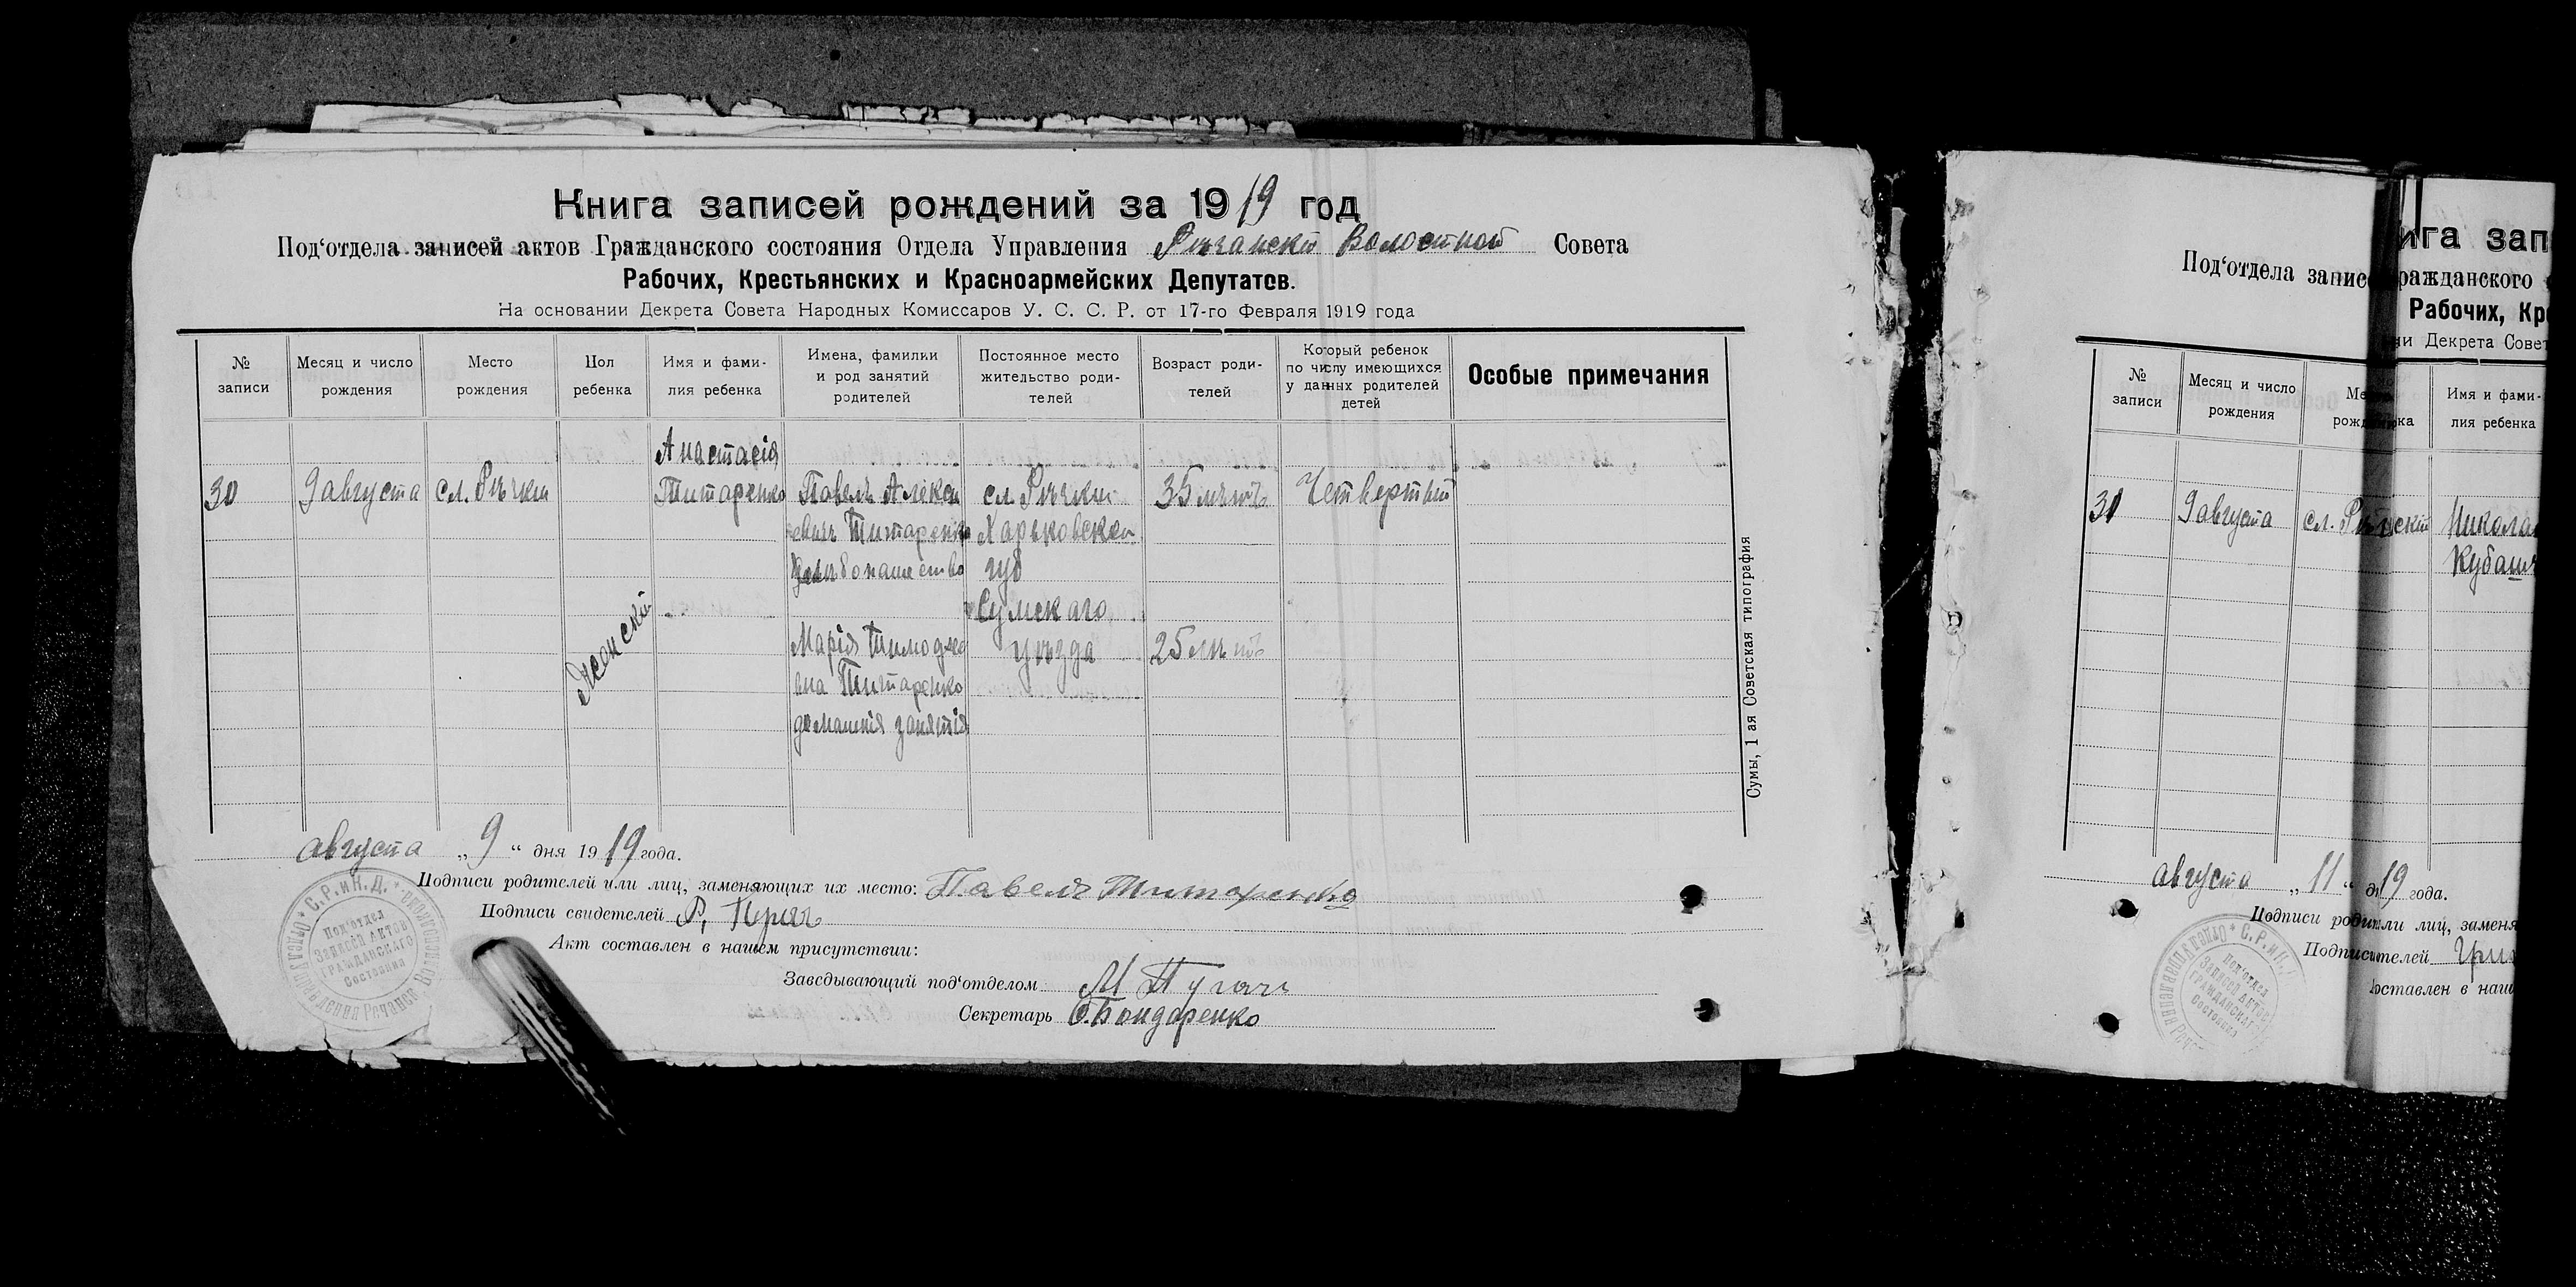 Книга записей рождений за 1919 год
Под‘отдела записей актов Гражданского состояния Отдела Управления Рѣчанскій Волостной Совета
Рабочих, Крестьянских и Красноармейских Депутатов.
На основании Декрета Совета Народных Комиссаров У. С. С. Р. от 17-го Февраля 1919 года
№ записи
Месяц и число рождения
Место рождения
Пол ребенка
Имя и фами-
лия ребенка
Имена, фамилии
и род занятий
родителей
Постоянное место
жительство роди-
телей
Возраст роди-
телей
Который ребенок
по числу имеющихся
у данных родителей
детей
Особые примечания
30
9 августа
сл. Рѣчки
Женский
Анастасія
Титаренко
Павелъ Алексѣ
евичъ Титаренко
Хлѣбопашество
Марія Тимофее
вна Титаренко
домашнія занятія
сл. Рѣчки
Харьковской
губ
Сумскаго
уѣзда
35 лѣтъ
25 лѣтъ
Четвертый
Сумы, 1 ая Советская типография
августа „9“ дня 1919 года.
Подписи родителей или лиц, заменяющих их место: Павелъ Титаренко
Подписи свидетелей Р.
Акт составлен в нашем присутствии:
Заведывающий под‘отделом М Пугачъ
Секретарь Бондаренко
С.Р.иК.Д.
Под‘отдел
Записей актов
Гражданского
Состояния
ига зап
Под‘отдела запис ражданского
Рабочих, Кр
и Декрета Совет
№ записи
Месяц и число
рождения
Ме
рож ка
Имя и фами-
лия ребенка
31
9 августа
сл. Рѣчки
Никола
Кубаш
августа „11“ д 19 года.
Подписи роди ли лиц, заменя
Подписи телей Гри
оставлен в наш
С.Р.иК.
Под‘отдел
Записей актов
Гражданског
Состояния